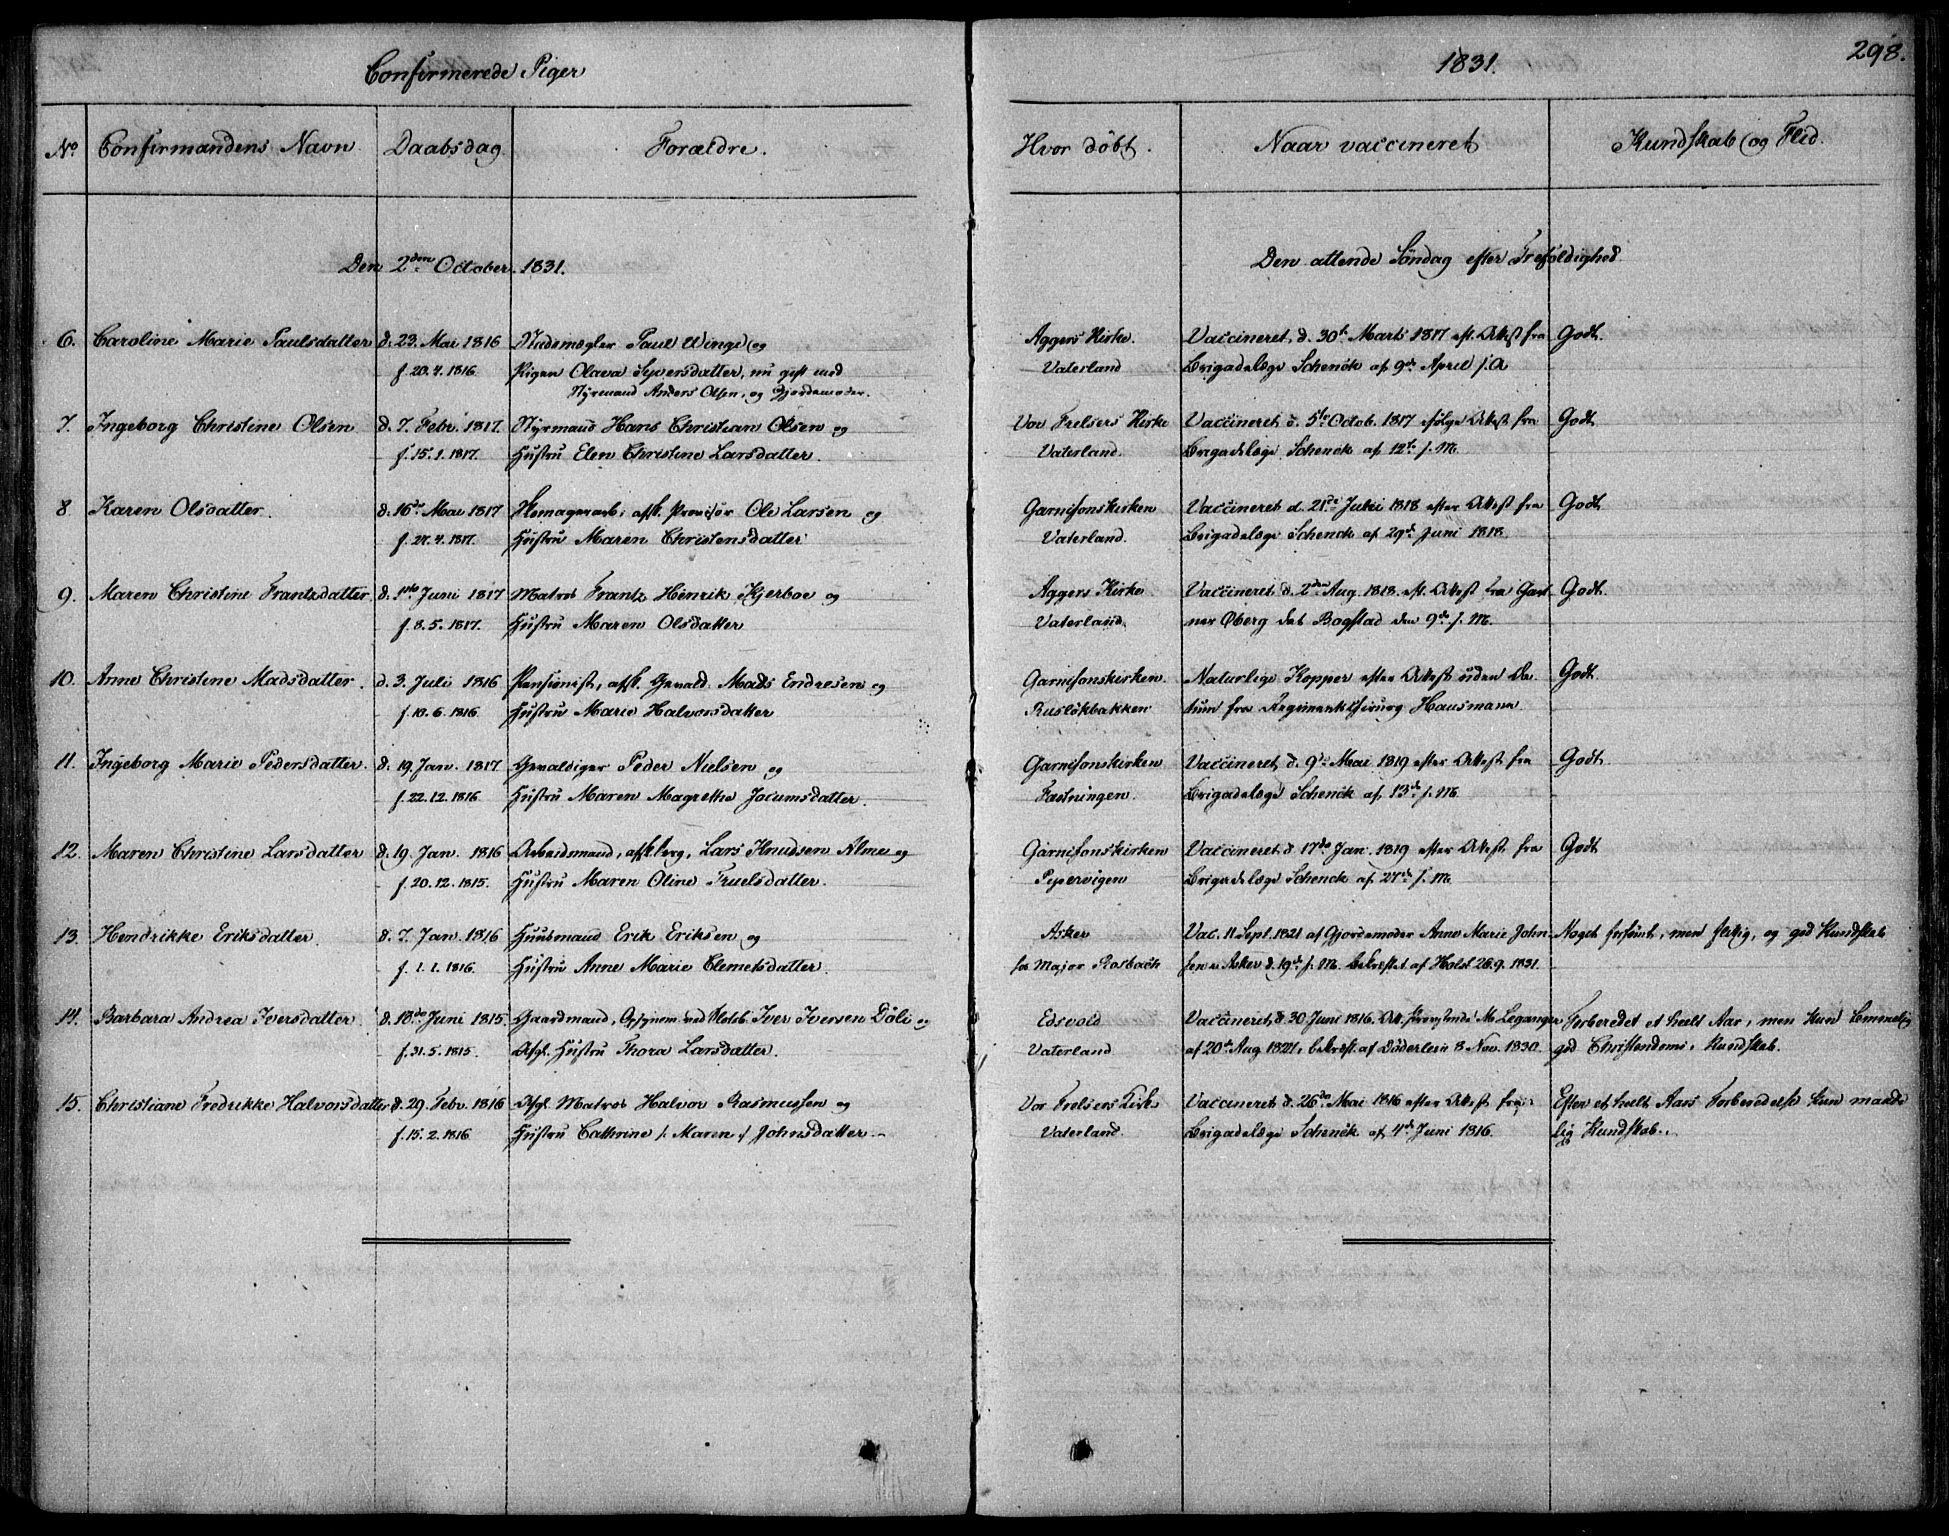 Confirmerede Piger
1831.
298.
No Confirmandens Navn Daabsdag Forældre. Hvor döbt. Naar vaccineret Kundskab og Flid.
Den 2den October 1831. Den attende Söndag efter Trefoldighed
6. Caroline Marie Paulsdatter d. 23. Mai 1816 Paul Winge og Aggers Kirke. Vaccineret d. 30te Marts 1817 eft. Attest fra Godt.
f. 20.4.1816 Pigen Olava Syversdatter, nu gift med Vaterland Brigadelæge Schenck af 9de April s. A
Styrmand Anders Olsen, og Gjordemoder.
7. Ingeborg Christine Olsen d. 7. Febr. 1817. Styrmand Hans Christian Olsen og Vor Frelsers Kirke Vaccineret d. 5te Octob. 1817 ifölge Attest fra Godt
f. 15.1.1817. Hustru Elen Christine Larsdatter. Vaterland. Brigadelæge Schenck af 12te s. M.
8. Karen Olsdatter. d. 16de Mai 1817 Ole Larsen og Garnisonskirken Vaccineret d. 21de Juni 1818 efter Attest fra Godt
f. 27.4.1817. Hustru Maren Christensdatter Vaterland. Brigadelæge Schenck af 29de Juni 1818
9. Maren Christine Frantzdatter d. 1ste Juni 1817 Matros Frantz Henrik Kjerboe og Aggers Kirke Vaccineret d. 2den Aug. 1818 eft. Attest fra Gart Godt.
f. 8.5.1817. Hustru Maren Olsdatter Vaterland. ner Öberg det Bogstad den 9de s. M.
10. Anne Christine Madsdatter. d. 3. Juli 1816 Pensionist, afsk. Gevald. Mads Endresen og Garnisonskirken. Naturlige Kopper efter Attest uden Da Godt
f. 10.6.1816 Hustru Marie Halvorsdatter Ruslökbakken tum fra Regimentschirurg Hausmann
11. Ingeborg Marie Pedersdatter. d. 19. Jan. 1817 Gevaldiger Peder Nielsen og Garnisonskirken Vaccineret d. 9de Mai 1819 efter Attest fra Godt.
f. 22.12.1816 Hustru Maren Magrethe Jocumsdatter. Fæstningen. Brigadelæge Schenck af 13de s. M.
12. Maren Christine Larsdatter d. 19. Jan. 1816 Arbeidsmand, Lars Knudsen Alme og Garnisonskirken Vaccineret d. 17de Jan. 1819 efter Attest fra Godt
f. 20.12.1815. Hustru Maren Oline Truelsdatter. Pepervigen Brigadelæge Schenck af 27de s. M
13. Hendrikke Eriksdatter. d. 7. Jan. 1816 Huusmand Erik Eriksen og Asker Vac. 11 Sept. 1821 af Gjordemoder Anne Marie John Noget forsömt, men flittig, og god Kundskab
f. 1.1.1816. Hustru Anne Marie Clemetsdatter. hos Major Rosbach sen i Asker d. 19de s. M. bekræftet af Holst 26.9.1831.
14. Barbara Andrea Iversdatter. d. 18de Juni 1815 Gaardmand, Opsynsm. ved Iver Iversen Döli og Edsvold Vaccineret d. 30 Juni 1816. M. Leganger Forberedet et heelt Aar, men kun temmelig
f. 31.5.1815. Afgl. Hustru Thora Larsdatter. Vaterland af 20de Aug. 1821, bekræft. af Döderlein 8 Nov. 1830. god Christendoms Kundskab.
15. Christiane Fredrikke Halvorsdatter d. 29. Febr. 1816 Afgl. Matros Halvor Rasmussen og Vor Frelsers Kirke Vaccineret d. 26de Mai 1816 efter Attest fra Efter et heelt Aars Forberedelse kun maade
f. 15.2.1816 Hustru Cathrine /: Maren :/ Johnsdatter. Vaterland. Brigadelæge Schenck af 4de Juni 1816. lig Kundskab.